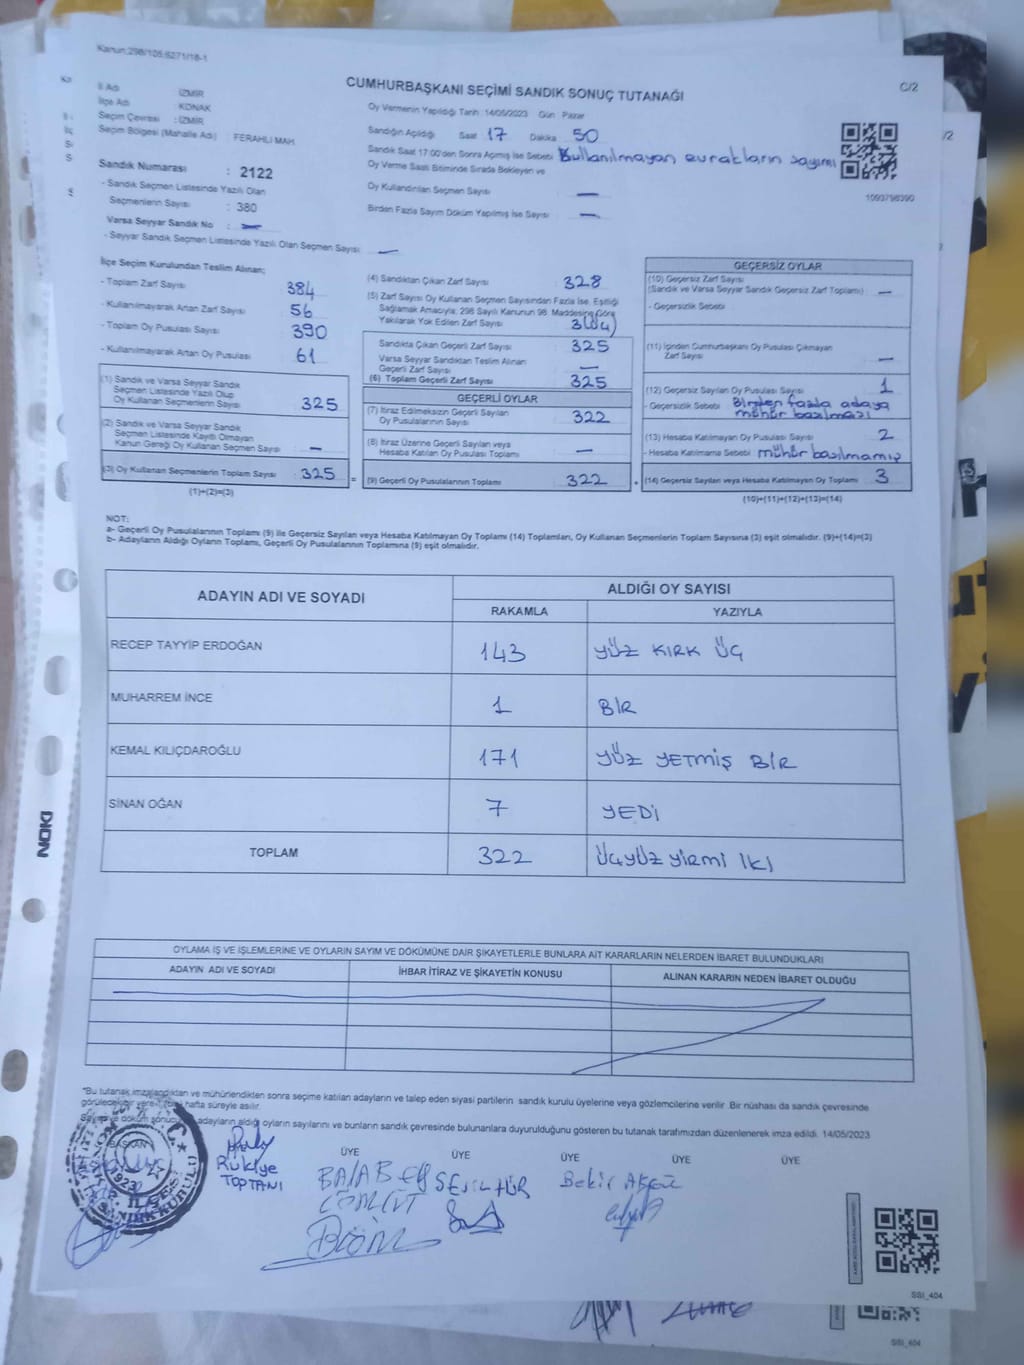 Kanun:298/105;6271/18-1
CUMHURBAŞKANI SEÇİMİ SANDIK SONUÇ TUTANAĞI
C/2
İl Adı : İZMİR
İlçe Adı : KONAK
Seçim Çevresi : İZMİR
Seçim Bölgesi (Mahalle Adı) : FERAHLI MAH.
Oy Vermenin Yapıldığı Tarih: 14/05/2023 Gün : Pazar
Sandığın Açıldığı Saat 17 Dakika 50
Sandık Saat 17:00'den Sonra Açılmış İse Sebebi Kullanılmayan evrakların sayımı
Oy Verme Saati Bitiminde Sırada Bekleyen ve
Oy Kullandırılan Seçmen Sayısı —
Birden Fazla Sayım Döküm Yapılmış İse Sayısı —
1093798390
Sandık Numarası : 2122
- Sandık Seçmen Listesinde Yazılı Olan
Seçmenlerin Sayısı : 380
Varsa Seyyar Sandık No : —
- Seyyar Sandık Seçmen Listesinde Yazılı Olan Seçmen Sayısı: —
İlçe Seçim Kurulundan Teslim Alınan;
- Toplam Zarf Sayısı : 384
- Kullanılmayarak Artan Zarf Sayısı : 56
- Toplam Oy Pusulası Sayısı : 390
- Kullanılmayarak Artan Oy Pusulası : 61
(1) Sandık ve Varsa Seyyar Sandık
Seçmen Listesinde Yazılı Olup
Oy Kullanan Seçmenlerin Sayısı : 325
(2) Sandık ve Varsa Seyyar Sandık
Seçmen Listesinde Kayıtlı Olmayan
Kanun Gereği Oy Kullanan Seçmen Sayısı : —
(3) Oy Kullanan Seçmenlerin Toplam Sayısı : 325
(1)+(2)=(3)
(4) Sandıktan Çıkan Zarf Sayısı : 328
(5) Zarf Sayısı Oy Kullanan Seçmen Sayısından Fazla İse, Eşitliği
Sağlamak Amacıyla; 298 Sayılı Kanunun 98. Maddesine Göre
Yakılarak Yok Edilen Zarf Sayısı : 3(üç)
Sandıkta Çıkan Geçerli Zarf Sayısı : 325
Varsa Seyyar Sandıktan Teslim Alınan
Geçerli Zarf Sayısı : —
(6) Toplam Geçerli Zarf Sayısı : 325
GEÇERLİ OYLAR
(7) İtiraz Edilmeksizin Geçerli Sayılan
Oy Pusulalarının Sayısı : 322
(8) İtiraz Üzerine Geçerli Sayılan veya
Hesaba Katılan Oy Pusulası Toplamı : —
(9) Geçerli Oy Pusulalarının Toplamı : 322
GEÇERSİZ OYLAR
(10) Geçersiz Zarf Sayısı
(Sandık ve Varsa Seyyar Sandık Geçersiz Zarf Toplamı) : —
- Geçersizlik Sebebi :
(11) İçinden Cumhurbaşkanı Oy Pusulası Çıkmayan
Zarf Sayısı : —
(12) Geçersiz Sayılan Oy Pusulası Sayısı : 1
- Geçersizlik Sebebi : Birden fazla adaya
mühür basılması
(13) Hesaba Katılmayan Oy Pusulası Sayısı : 2
- Hesaba Katılmama Sebebi : mühür basılmamış
(14) Geçersiz Sayılan veya Hesaba Katılmayan Oy Toplamı : 3
(10)+(11)+(12)+(13)=(14)
NOT:
a- Geçerli Oy Pusulalarının Toplamı (9) ile Geçersiz Sayılan veya Hesaba Katılmayan Oy Toplamı (14) Toplamları, Oy Kullanan Seçmenlerin Toplam Sayısına (3) eşit olmalıdır. (9)+(14)=(3)
b- Adayların Aldığı Oyların Toplamı, Geçerli Oy Pusulalarının Toplamına (9) eşit olmalıdır.
ADAYIN ADI VE SOYADI
ALDIĞI OY SAYISI
RAKAMLA YAZIYLA
RECEP TAYYİP ERDOĞAN 143 YÜZ KIRK ÜÇ
MUHARREM İNCE 1 BİR
KEMAL KILIÇDAROĞLU 171 YÜZ YETMİŞ BİR
SİNAN OĞAN 7 YEDİ
TOPLAM 322 Üçyüz yirmi iki
OYLAMA İŞ VE İŞLEMLERİNE VE OYLARIN SAYIM VE DÖKÜMÜNE DAİR ŞİKAYETLERLE BUNLARA AİT KARARLARIN NELERDEN İBARET BULUNDUKLARI
ADAYIN ADI VE SOYADI İHBAR İTİRAZ VE ŞİKAYETİN KONUSU ALINAN KARARIN NEDEN İBARET OLDUĞU
"Bu tutanak imzalandıktan ve mühürlendikten sonra seçime katılan adayların ve talep eden siyasi partilerin sandık kurulu üyelerine veya gözlemcilerine verilir. Bir nüshası da sandık çevresinde
hafta süreyle asılır.
adayların aldığı oyların sayılarını ve bunların sandık çevresinde bulunanlara duyurulduğunu gösteren bu tutanak tarafımızdan düzenlenerek imza edildi. 14/05/2023
BAŞKAN ÜYE ÜYE ÜYE ÜYE ÜYE
Rukiye
TOPTANI
Bekir
1923
SSI_404
NOKI
SSI_404